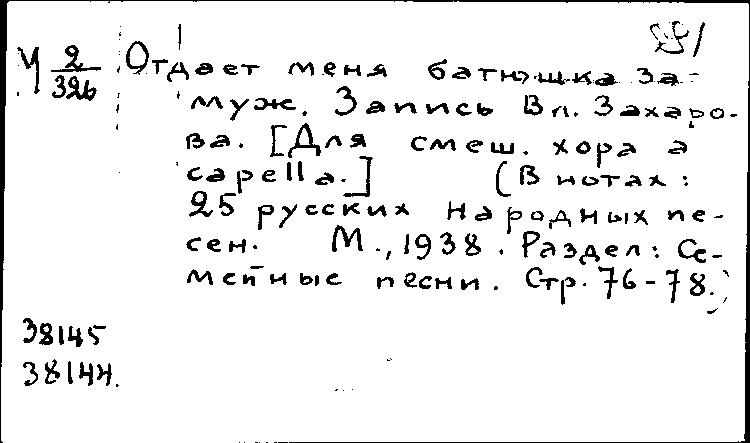 У 2/326 Отдает меня батюшка за-
муж. Запись Вл. Захаро-
ва. [Для смеш. хора a
capella.] (В нотах:
25 русских народных пе-
сен. М., 1938. Раздел: Се-
мейные песни. Стр. 76-78.)
38145
38144.